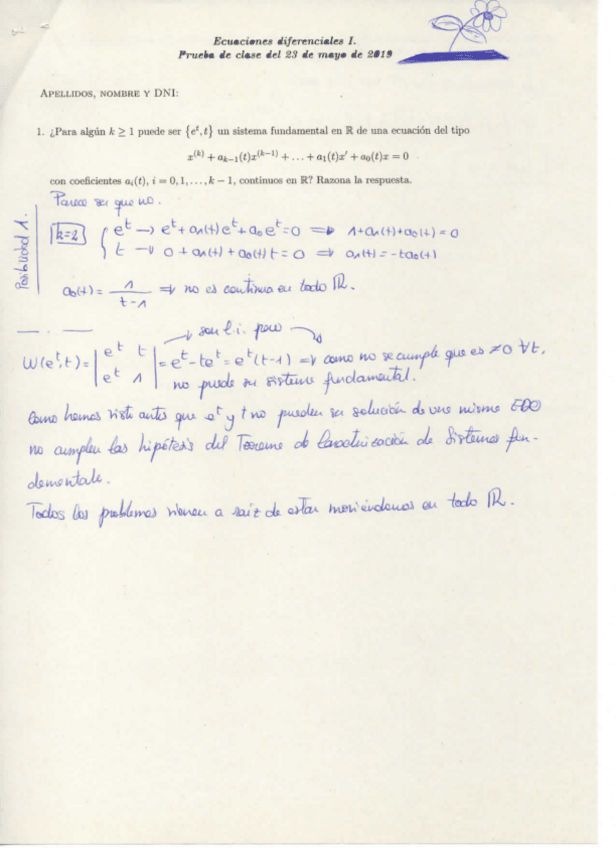 Ecuaciones diferenciales I.
Prueba de clase del 23 de mayo de 2019
APELLIDOS, NOMBRE Y DNI:
1. ¿Para algún k ≥ 1 puede ser {eᵗ, t} un sistema fundamental en ℝ de una ecuación del tipo
x⁽ᵏ⁾ + aₖ₋₁(t)x⁽ᵏ⁻¹⁾ + … + a₁(t)x′ + a₀(t)x = 0
con coeficientes aᵢ(t), i = 0, 1, …, k − 1, continuos en ℝ? Razona la respuesta.
Parece ser que no.
Posibilidad 1.
k=2 { eᵗ → eᵗ + a₁(t)eᵗ + a₀eᵗ = 0 ⇒ 1 + a₁(t) + a₀(t) = 0
t → 0 + a₁(t) + a₀(t) t = 0 ⇒ a₁(t) = -t a₀(t)
a₀(t) = 1/(t-1) ⇒ no es continua en todo ℝ.
→ son l.i. pero
W(eᵗ, t) = | eᵗ t ; eᵗ 1 | = eᵗ - teᵗ = eᵗ(t-1) ⇒ como no se cumple que es ≠ 0 ∀t,
no puede ser sistema fundamental.
Como hemos visto antes que eᵗ y t no pueden ser solución de una misma EDO
no cumplen las hipótesis del Teorema de Caracterización de Sistemas fun-
damentale.
Todos los problemas vienen a raiz de estar moviéndonos en todo ℝ.